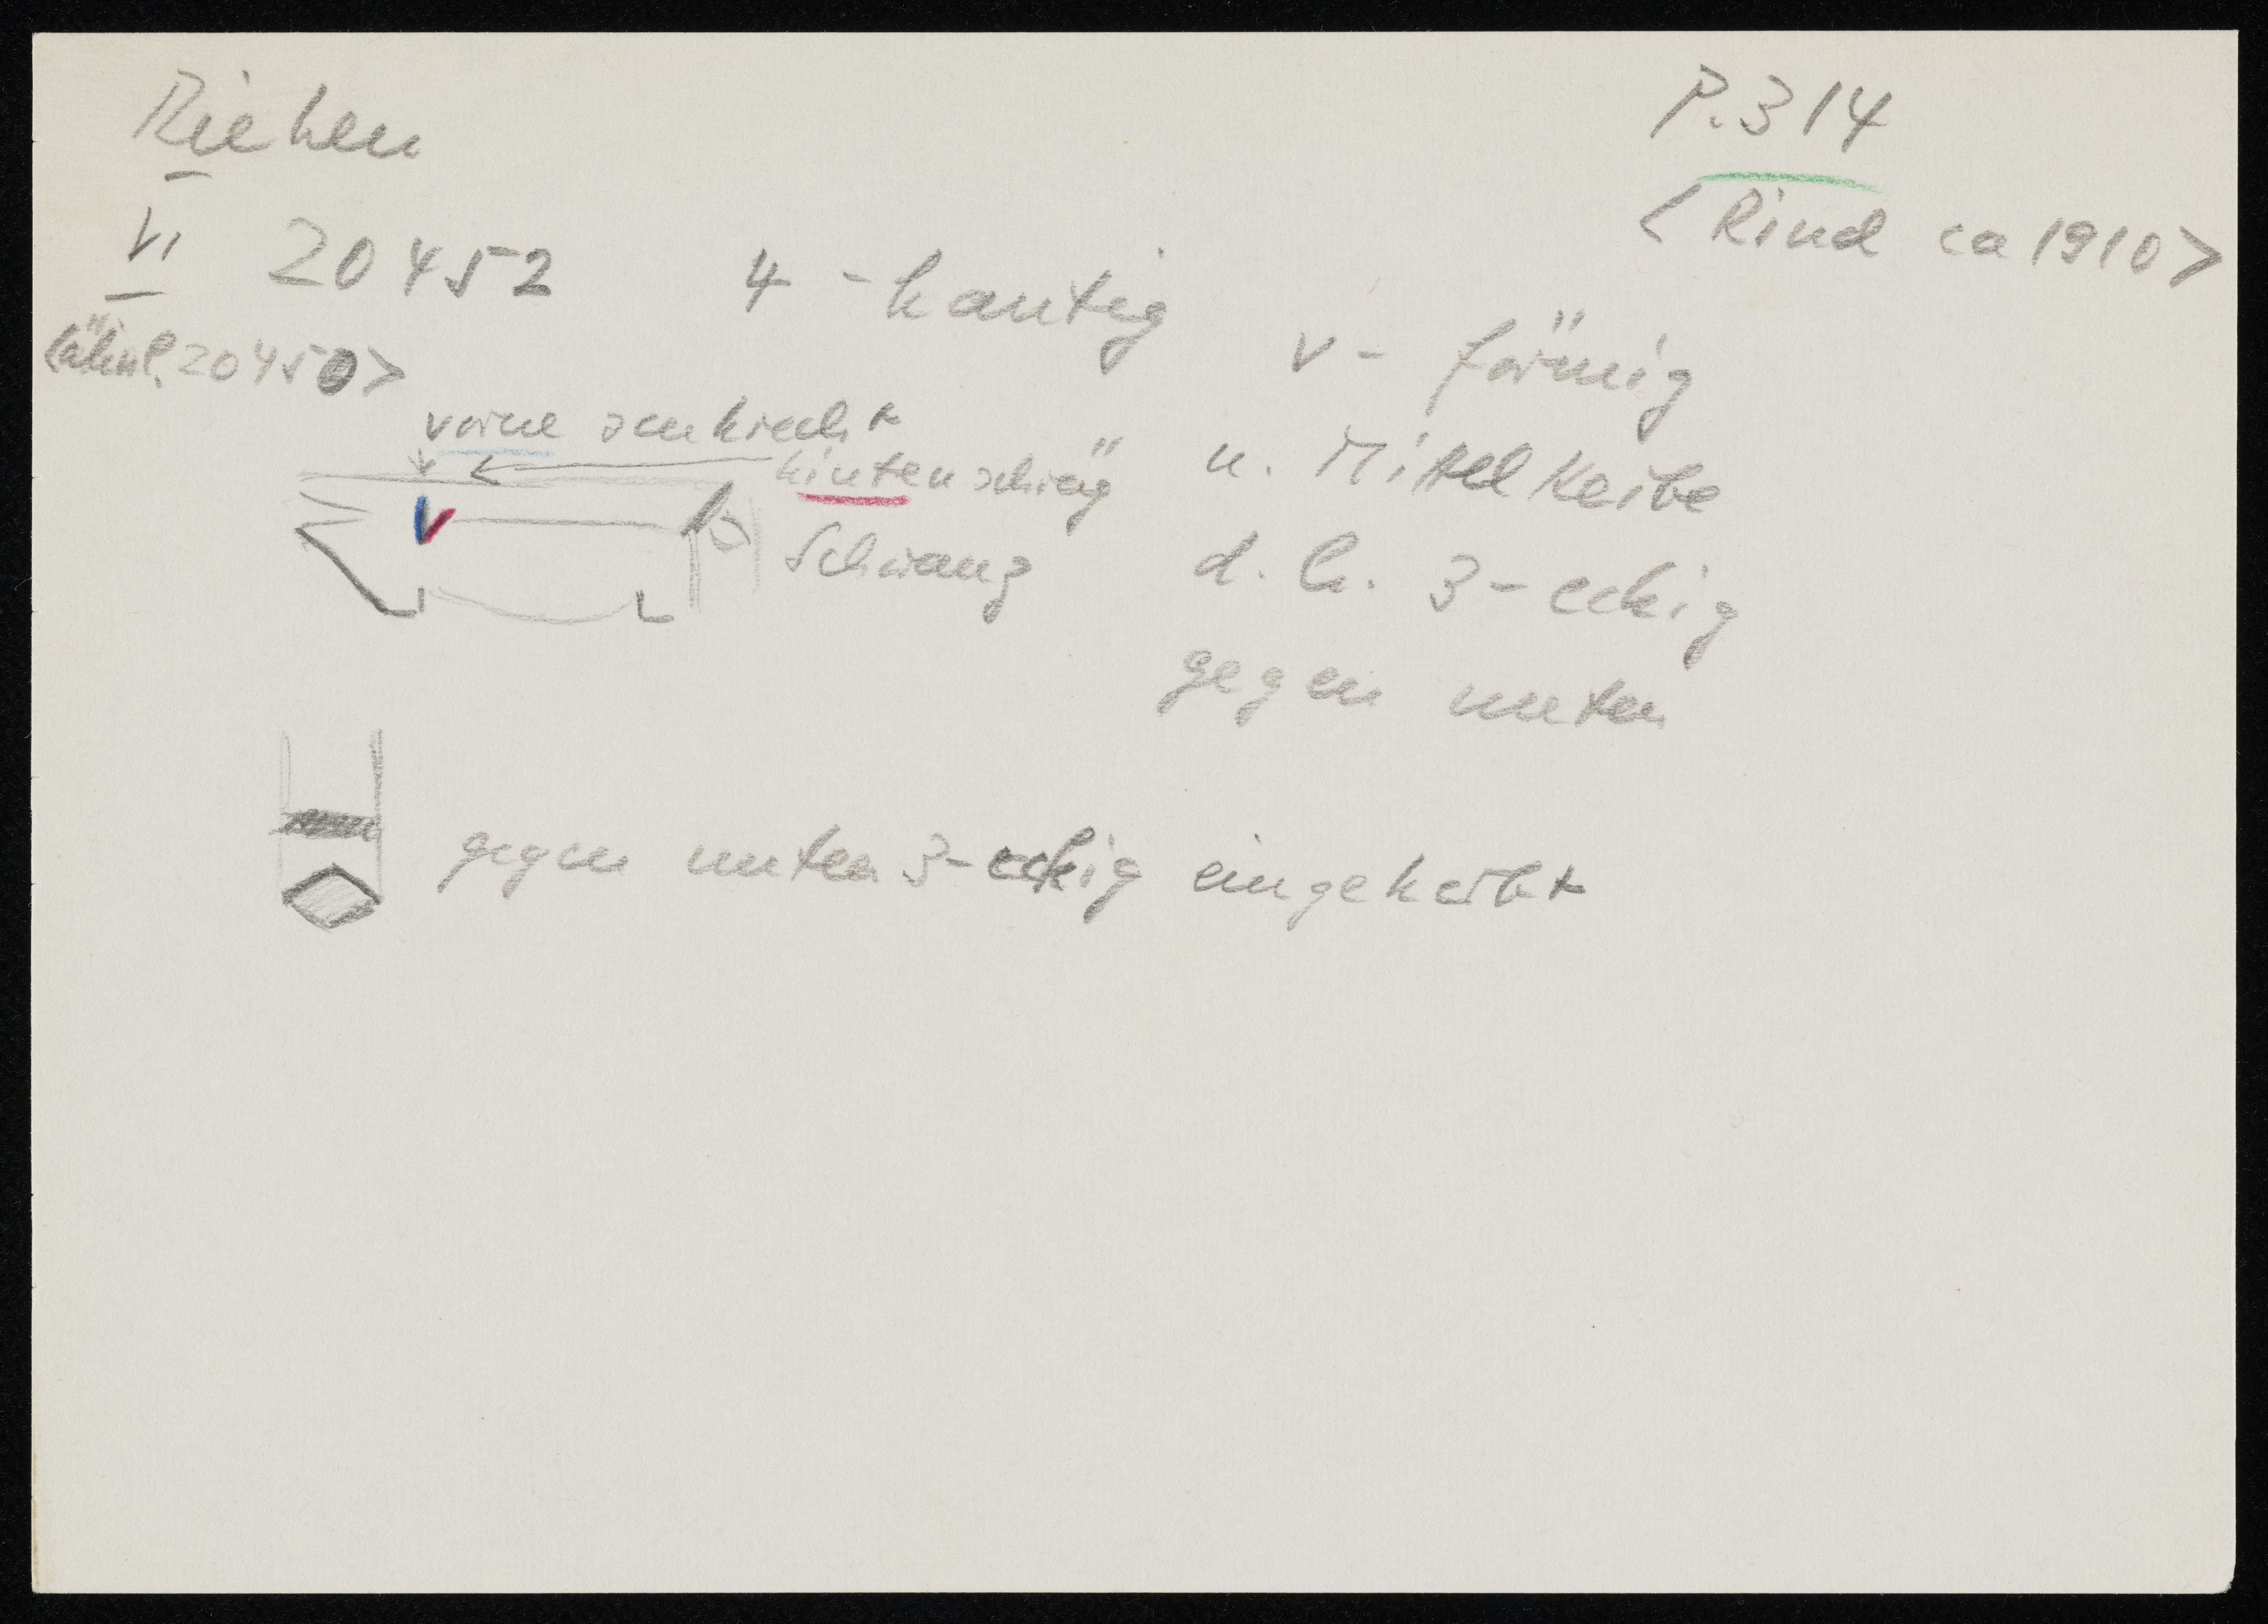 Riehen
P. 314
<Rind ca 1910>
VI 20452 4-kantig
<ähnl. 20450>
v-förmig
vorne senkrecht
hinten schräg
u. Mittelkerbe
Schwanz
d.h. 3-eckig
gegen unten
gegen unten 3-eckig eingekerbt